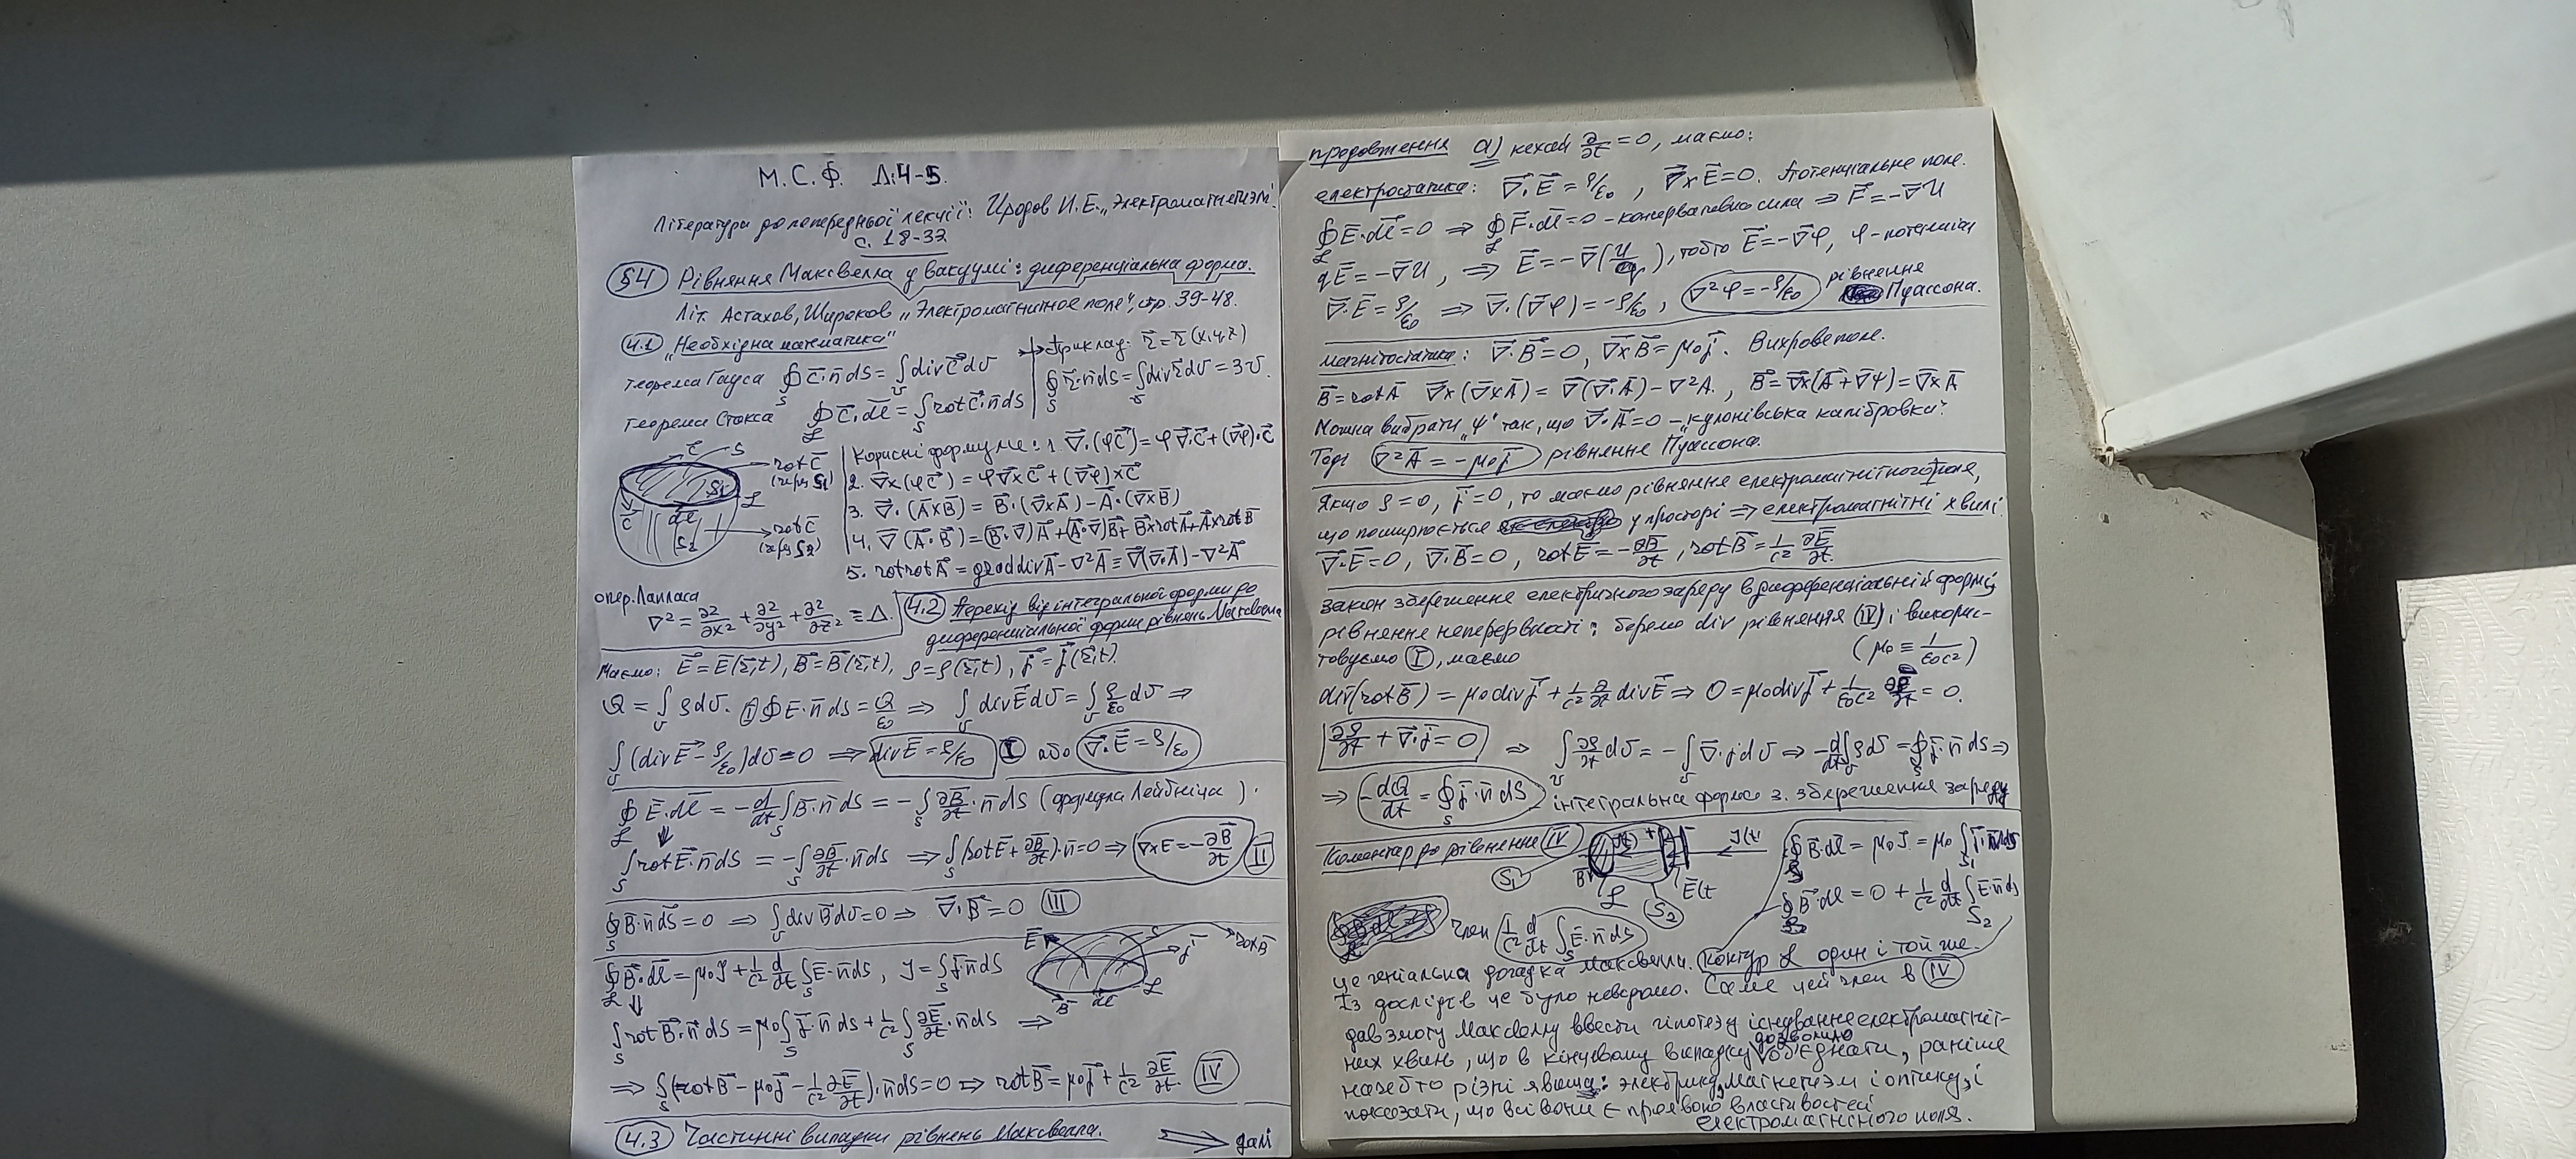 М.С.Ф. Л.4-5.
Література до попередньої лекції: Иродов И.Е. „Электромагнетизм"
с. 18-32
§4 Рівняння Максвелла у вакуумі: диференціальна форма.
Літ. Астахов, Широков „Электромагнитное поле", стр. 39-48.
4.1 „Необхідна математика"
Теорема Гауса ∮_S C⃗·n⃗ ds = ∫_υ div C⃗ dυ → Приклад: r⃗ = r⃗(x,y,z)
Теорема Стокса ∮_L C⃗·dl⃗ = ∫_S rot C⃗·n⃗ ds | ∮_S r⃗·n⃗ ds = ∫_υ div r⃗ dυ = 3υ.
Корисні формули: 1. ∇⃗·(φC⃗) = φ∇⃗·C⃗ + (∇⃗φ)·C⃗
2. ∇⃗×(φC⃗) = φ∇⃗×C⃗ + (∇⃗φ)×C⃗
3. ∇⃗·(A⃗×B⃗) = B⃗·(∇⃗×A⃗) - A⃗·(∇⃗×B⃗)
4. ∇⃗(A⃗·B⃗) = (B⃗·∇⃗)A⃗ + (A⃗·∇⃗)B⃗ + B⃗×rot A⃗ + A⃗×rot B⃗
5. rot rot A⃗ = grad div A⃗ - ∇²A⃗ ≡ ∇⃗(∇⃗·A⃗) - ∇²A⃗
rot C⃗ (на S₁)
rot C⃗ (на S₂)
C⃗ S L S₁ dl⃗ S₂
опер. Лапласа
∇² = ∂²/∂x² + ∂²/∂y² + ∂²/∂z² ≡ Δ
4.2 Перехід від інтегральної форми до
диференціальної форми рівнянь Максвелла
Маємо: E⃗ = E⃗(r⃗,t), B⃗ = B⃗(r⃗,t), ρ = ρ(r⃗,t), j⃗ = j⃗(r⃗,t).
Q = ∫_υ ρdυ. I ∮_S E⃗·n⃗ ds = Q/ε₀ ⇒ ∫_υ div E⃗ dυ = ∫_υ ρ/ε₀ dυ ⇒
∫_υ (div E⃗ - ρ/ε₀)dυ = 0 ⇒ div E⃗ = ρ/ε₀ I або ∇⃗·E⃗ = ρ/ε₀
∮_L E⃗·dl⃗ = -d/dt ∫_S B⃗·n⃗ ds = -∫_S ∂B⃗/∂t·n⃗ ds (формула Лейбніца).
∫_S rot E⃗·n⃗ ds = -∫_S ∂B⃗/∂t·n⃗ ds ⇒ ∫_S (rot E⃗ + ∂B⃗/∂t)·n⃗ = 0 ⇒ ∇×E = -∂B⃗/∂t II
∮_S B⃗·n⃗ ds = 0 ⇒ ∫_υ div B⃗ dυ = 0 ⇒ ∇⃗·B⃗ = 0 III
∮_L B⃗·dl⃗ = μ₀J + 1/c² d/dt ∫_S E⃗·n⃗ ds, J = ∫_S j⃗·n⃗ ds
∫_S rot B⃗·n⃗ ds = μ₀∫_S j⃗·n⃗ ds + 1/c² ∫_S ∂E⃗/∂t·n⃗ ds ⇒
E⃗ S j⃗ rot B⃗ B⃗ dl⃗ L
⇒ ∫_S (rot B⃗ - μ₀j⃗ - 1/c² ∂E⃗/∂t)·n⃗ ds = 0 ⇒ rot B⃗ = μ₀j⃗ + 1/c² ∂E⃗/∂t. IV
4.3 Частинні випадки рівнянь Максвелла. ⇒ далі
продовження а) нехай ∂/∂t = 0, маємо:
електростатика: ∇⃗·E⃗ = ρ/ε₀, ∇⃗×E⃗ = 0. Потенціальне поле.
∮_L E⃗·dl⃗ = 0 ⇒ ∮_L F⃗·dl⃗ = 0 - консервативна сила ⇒ F⃗ = -∇⃗U
qE⃗ = -∇⃗U, ⇒ E⃗ = -∇⃗(U/q), тобто E⃗ = -∇⃗φ, φ - потенціал
∇⃗·E⃗ = ρ/ε₀ ⇒ ∇⃗·(∇⃗φ) = -ρ/ε₀, ∇²φ = -ρ/ε₀ рівняння
Пуассона.
магнітостатика: ∇⃗·B⃗ = 0, ∇⃗×B⃗ = μ₀j⃗. Вихрове поле.
B⃗ = rot A⃗ ∇⃗×(∇⃗×A⃗) = ∇⃗(∇⃗·A⃗) - ∇²A⃗, B⃗ = ∇⃗×(A⃗ + ∇⃗ψ) = ∇⃗×A⃗
Можна вибрати „ψ" так, що ∇⃗·A⃗ = 0 - „кулонівська калібровка"
Тоді ∇²A⃗ = -μ₀j⃗ рівняння Пуассона
Якщо ρ = 0, j⃗ = 0, то маємо рівняння електромагнітного поля,
що поширюється у просторі ⇒ електромагнітні хвилі.
∇⃗·E⃗ = 0, ∇⃗·B⃗ = 0, rot E⃗ = -∂B⃗/∂t, rot B⃗ = 1/c² ∂E⃗/∂t
Закон збереження електричного заряду в диференціальній формі,
рівняння неперервності: беремо div рівняння IV і викорис-
товуємо I, маємо (μ₀ ≡ 1/ε₀c²)
div(rot B⃗) = μ₀ div j⃗ + 1/c² ∂/∂t div E⃗ ⇒ 0 = μ₀ div j⃗ + 1/ε₀c² ∂ρ/∂t = 0.
∂ρ/∂t + ∇⃗·j⃗ = 0 ⇒ ∫_υ ∂ρ/∂t dυ = -∫_υ ∇⃗·j⃗ dυ ⇒ -d/dt ∫ρdυ = ∮_S j⃗·n⃗ ds ⇒
⇒ -dQ/dt = ∮_S j⃗·n⃗ ds інтегральна форма з. збереження заряду
Коментар до рівняння IV
S₁ L B⃗ S₂ E⃗(t) J(t)
∮_L B⃗·dl⃗ = μ₀J = μ₀ ∫_S₁ j⃗·n⃗ ds
∮_L B⃗·dl⃗ = 0 + 1/c² d/dt ∫_S₂ E⃗·n⃗ ds
Член 1/c² d/dt ∫_S E⃗·n⃗ ds Контур L один і той же.
це геніальна догадка Максвелла.
Із дослідів це було невідомо. Саме цей член в IV
дав змогу Максвеллу ввести гіпотезу існування електромагніт-
них хвиль, що в кінцевому випадку дозволило об'єднати, раніше
нібито різні явища: електрику, магнетизм і оптику і
показати, що всі вони є проявом властивостей
електромагнітного поля.